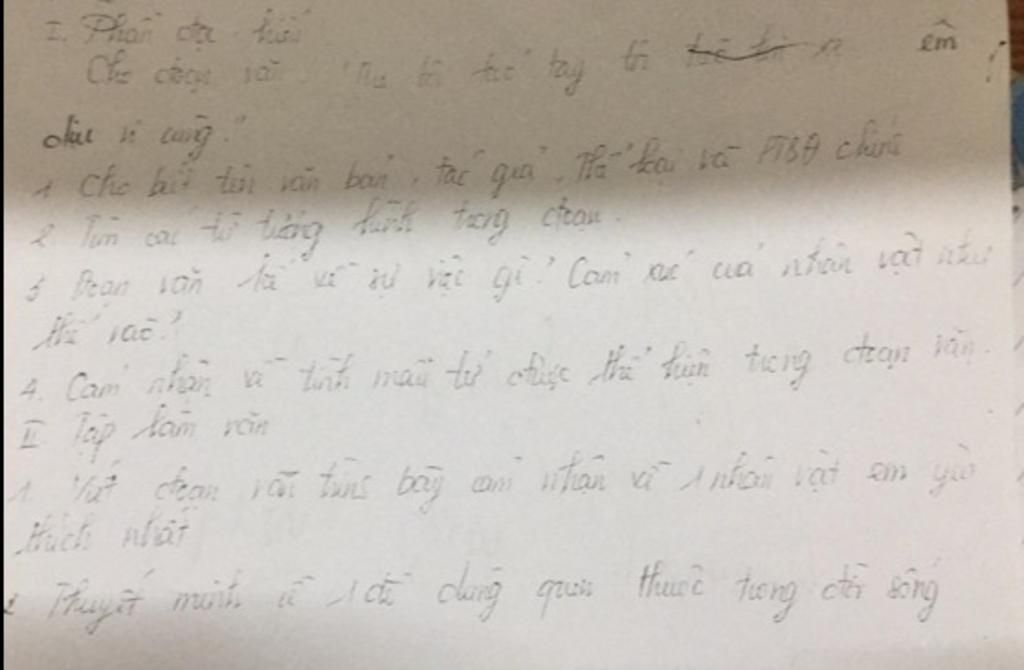 I. Phần đọc hiểu
Cho đoạn văn: "Mẹ tôi tôi êm
dịu vô cùng."
1 Cho biết tên văn bản, tác giả, thể loại và PTBĐ chính
2 Tìm các từ tượng hình trong đoạn.
3 Đoạn văn kể về sự việc gì? Cảm xúc của nhân vật như
thế nào?
4. Cảm nhận về tình mẫu tử được thể hiện trong đoạn văn.
II Tập làm văn
1. Viết đoạn văn trình bày cảm nhận về 1 nhân vật em yêu
thích nhất
2 Thuyết minh về 1 đồ dùng quen thuộc trong đời sống